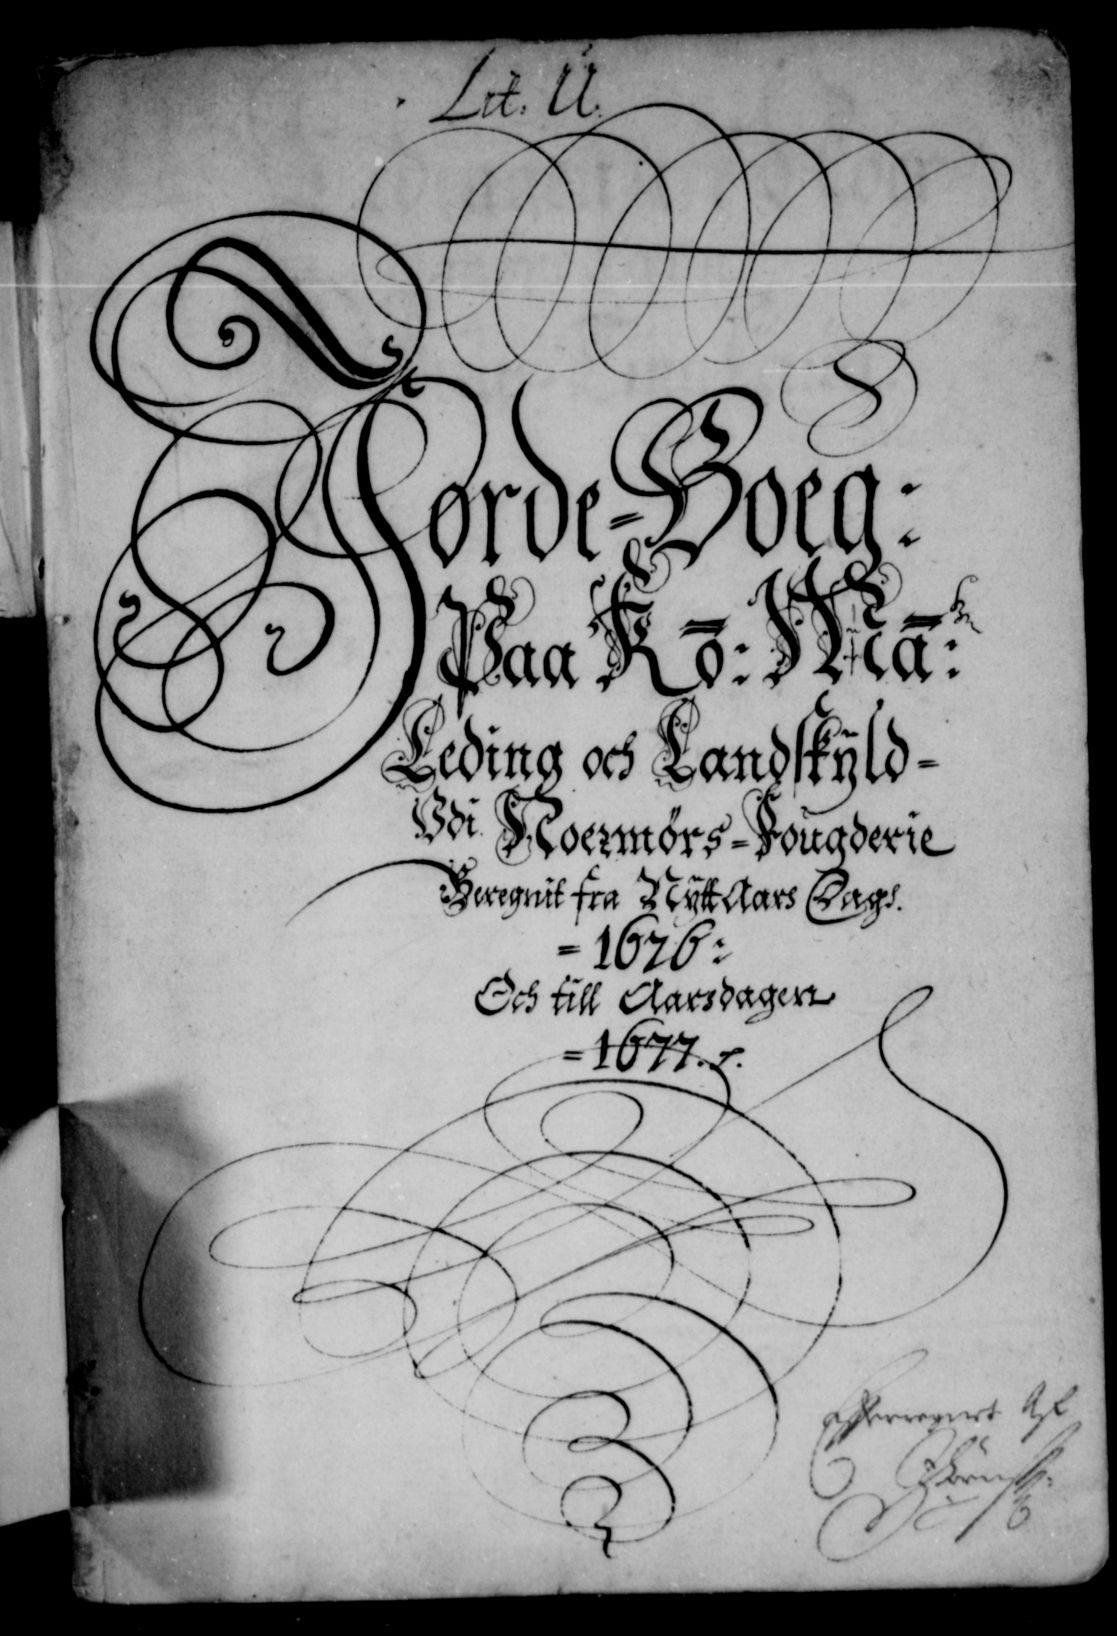 Lit. U.
Jorde-Boeg:
Paa Kō: Mā:
Leding och Landskÿld=
Vdi Noermørs=Fougderie
Beregnit fra Nÿtt Aars Dags.
= 1676:
Och till Aarsdagen
= 1677.